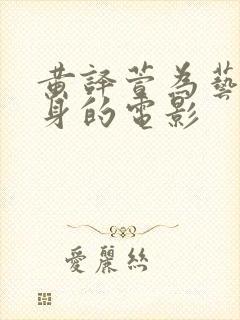 黄譯萱為藝
身的電影
愛麗絲